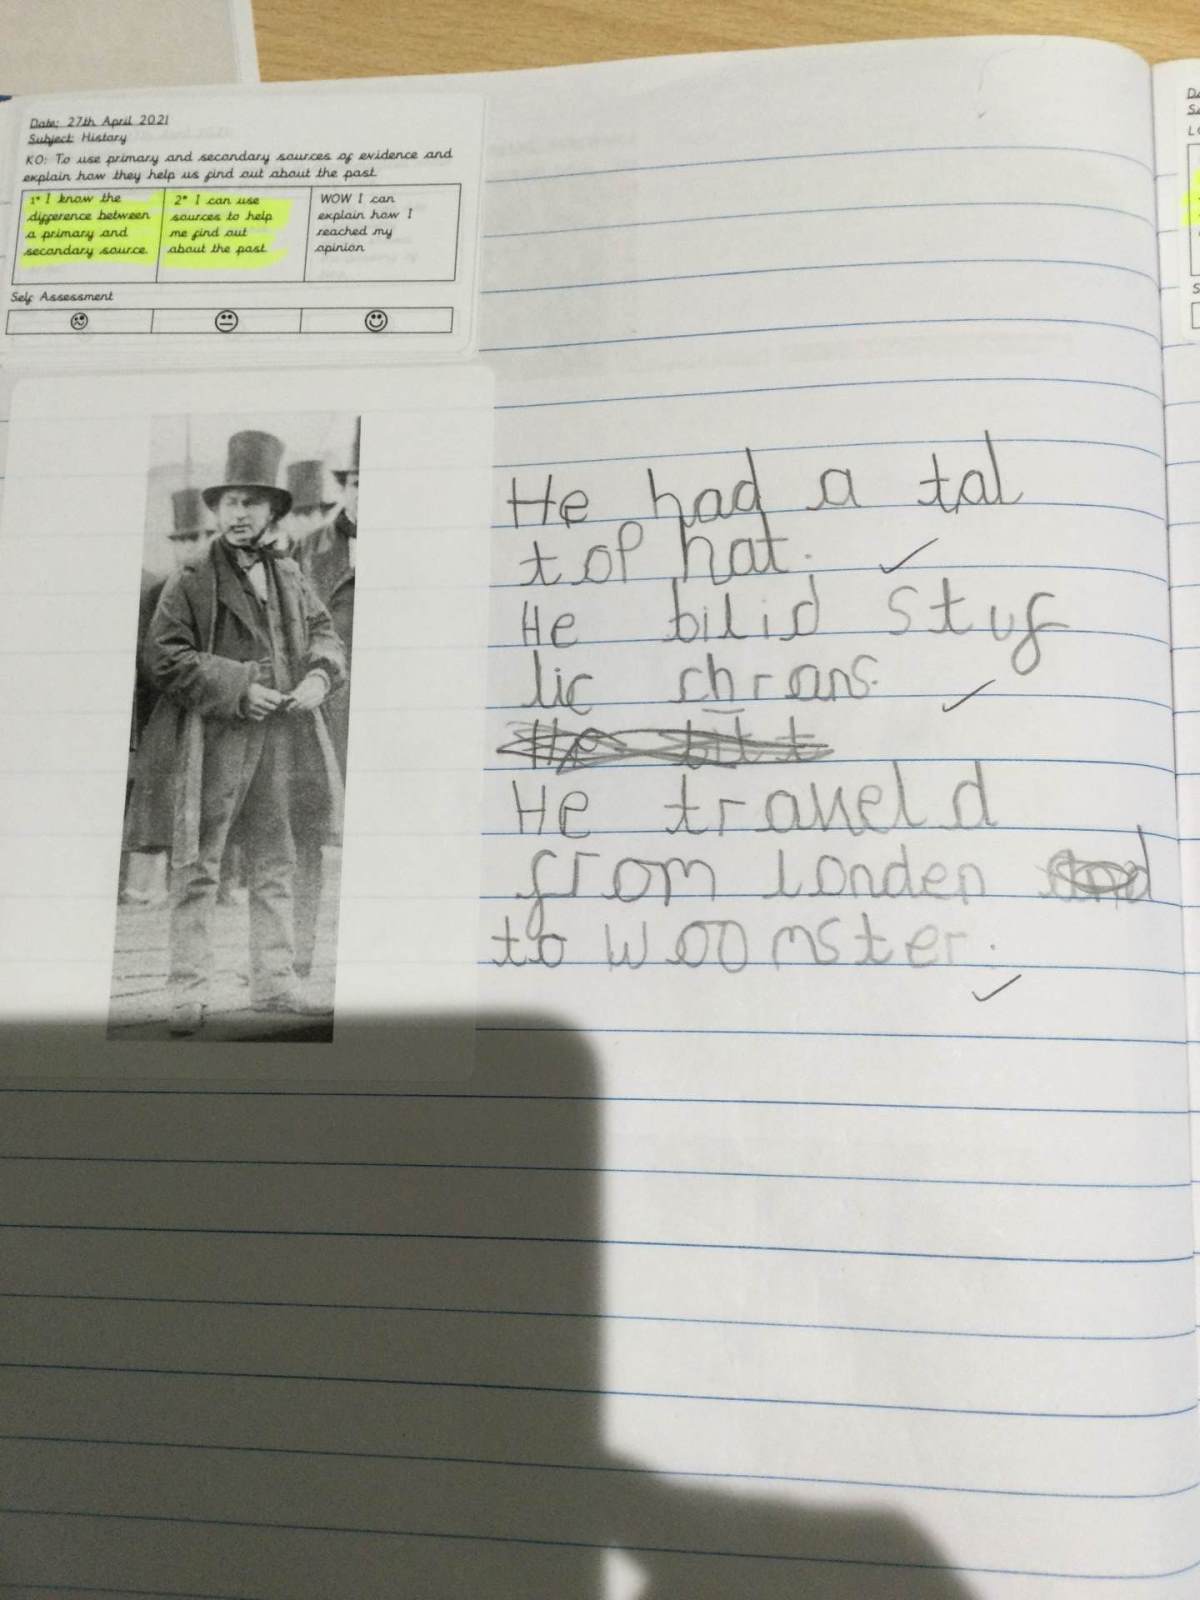 Date: 27th April 2021
Subject: History
KO: To use primary and secondary sources of evidence and
explain how they help us find out about the past.
1* I know the
difference between
a primary and
secondary source.
2* I can use
sources to help
me find out
about the past.
WOW I can
explain how I
reached my
opinion
Self Assessment
He had a tal
top hat.
He bilid stuf
lic chrans.
He traveld
from Londen
to Woomster.